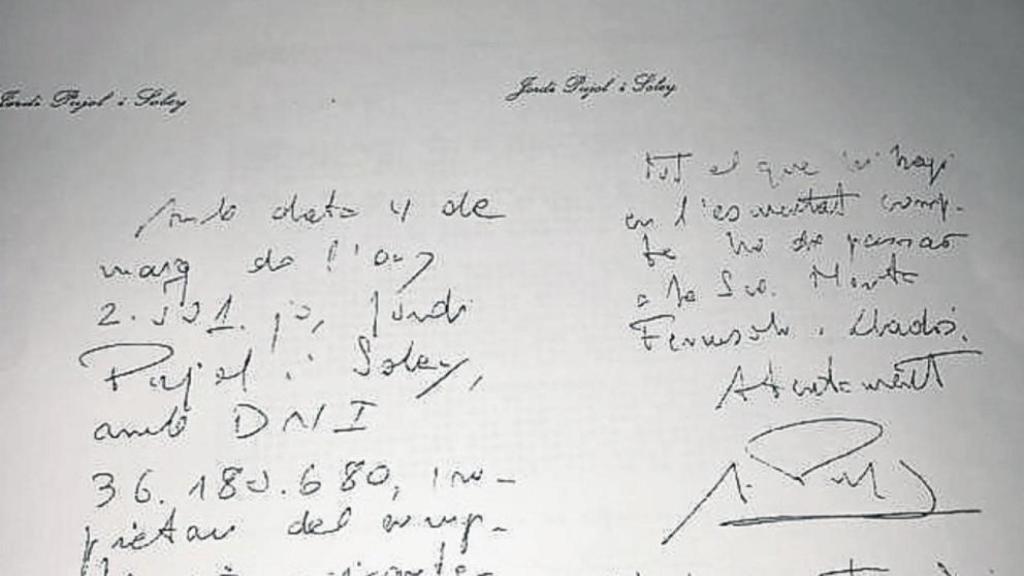 Jordi Pujol i Soley
Amb data 4 de
març de l'any
2.001. jo, Jordi
Pujol i Soley,
amb DNI
36.180.680, pro-
pietari del comp-
Jordi Pujol i Soley
Tot el que hi hagi
en l'esmentat comp-
te ho de passar
a la Sra. Marta
Ferrusola i Lladós.
Atentament